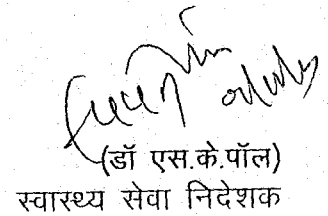 (डॉ एस.के.पॉल)
स्वास्थ्य सेवा निदेशक